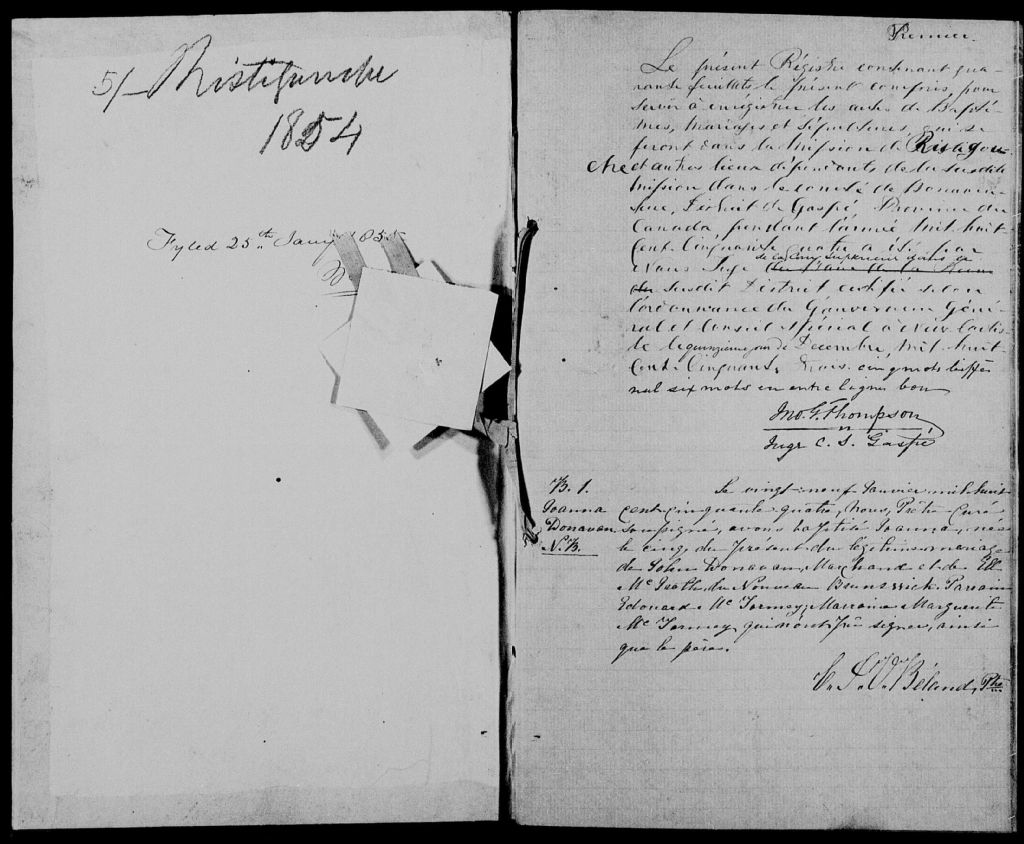 5/- Ristigouche
1854
Fyled 25th Jany 1855
Premier.
Le présent Régistre contenant qua-
rante feuillets le présent compris, pour
servir à enrégistrer les actes de Baptê-
mes, mariages et sépultures, qui se
feront dans la mission de Ristigou-
che et autres lieux dépendants de la susdite
mission dans le comté de Bonaven-
ture, District de Gaspé Province du
Canada, pendant l'année mil huit
cent cinquante quatre a été par
de la Cour Supérieure dans ce
Nous Juge
du susdit District certifié selon
l'ordonnance du Gouverneur Géné-
ral et Conseil spécial à New Carlis-
le le quinzième jour de Décembre, mil huit
cent cinquante trois. cinq mots biffés
nul six mots en entre lignes bon
Jno. G. Thompson
Juge C. S. Gaspé
B. 1.
Joanna
Donavan
N.B.
Le vingt-neuf Janvier mil huit
cent cinquante quatre, nous, Prêtre Curé
soussigné, avons baptisé Joanna, née
le cinq du présent du légitime mariage
de John Donavan, Marchand et de
Mc du Nouveau Brunswick. Parrain
Edouard Mc Tormey; Marraine Marguerite
Mc Tormey, qui n'ont pu signer, ainsi
que le père.
C. S. V. Béland, Ptre